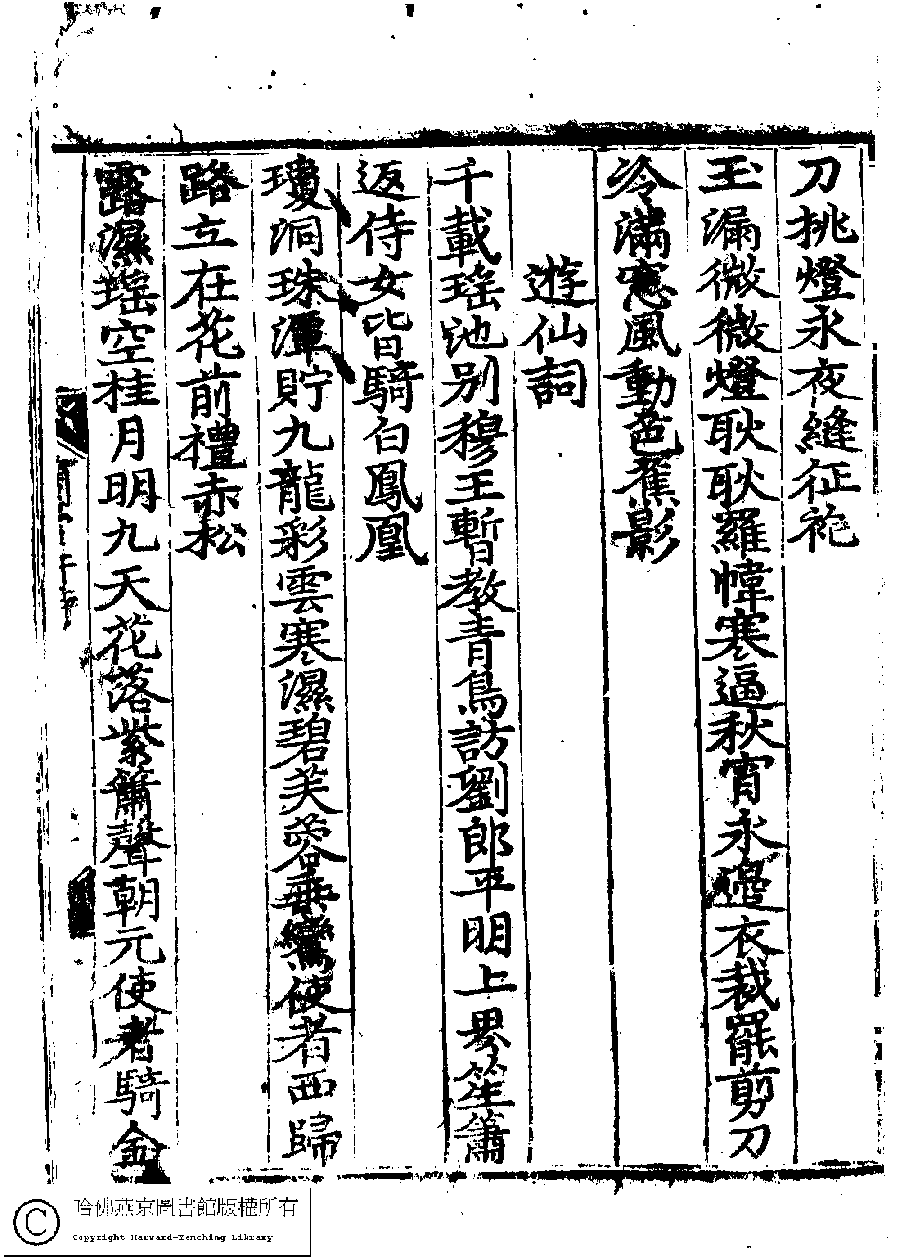 刀挑燈永夜縫征袍
玉漏微微燈耿耿羅幃寒逼秋宵永邊衣裁罷剪刀
冷滿窓風動芭蕉影
遊仙詞
千載瑤池別穆王暫教青鳥訪劉郎平明上界笙簫
返侍女皆騎白鳳凰
瓊洞珠潭貯九龍彩雲寒濕碧芙蓉乘鸞使者西歸
路立在花前禮赤松
露濕瑤空桂月明九天花落紫簫聲朝元使者騎金
哈佛燕京圖書館版權所有
Copyright Harvard-Yenching Library